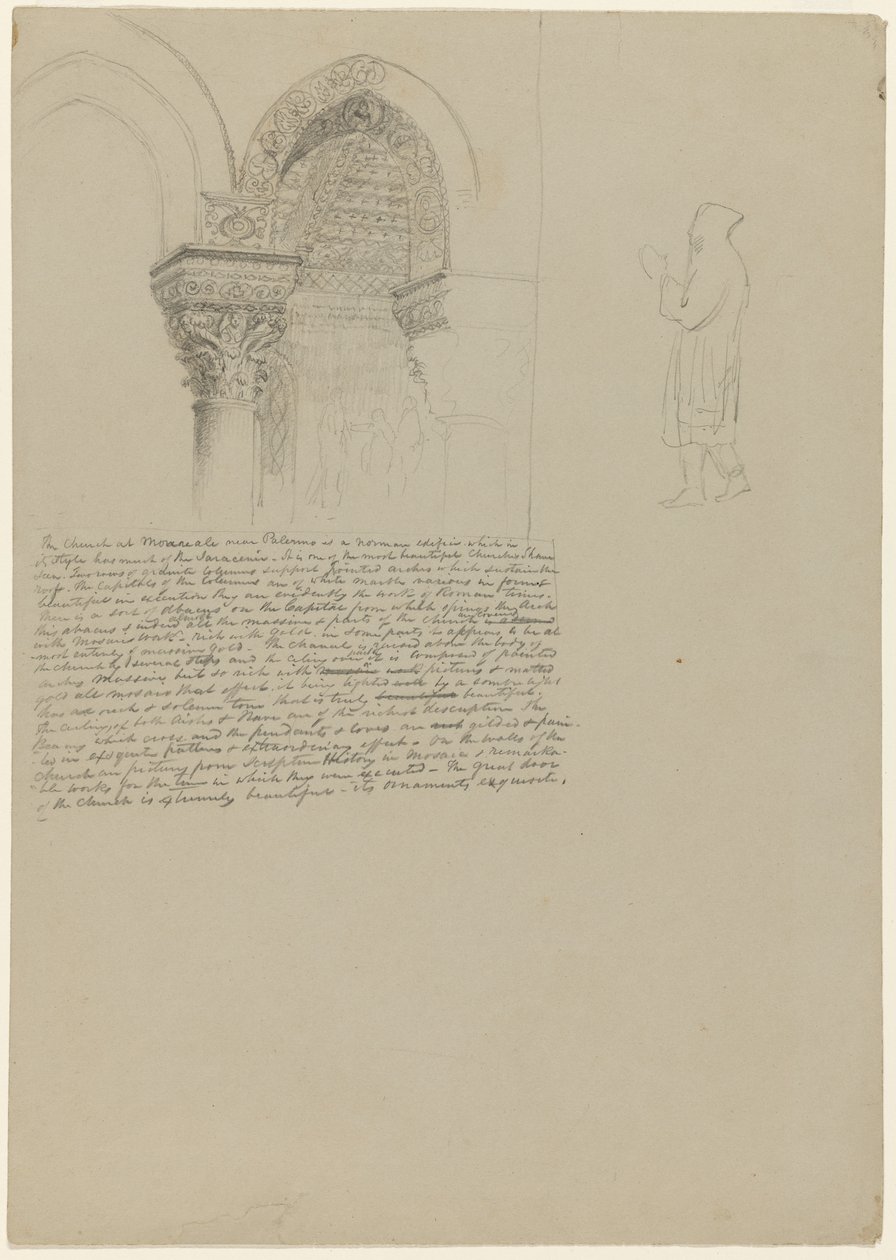 The Church at Morreale near Palermo is a Norman edifice which in
its style has much of the Saracenic - It is one of the most beautiful Churches I have
seen. Two rows of granite columns support pointed arches which sustain the
roof - The Capitals of the Columns are of white marble various in form &
beautiful in execution they are evidently the work of Roman times -
There is a sort of Abacus on the Capital from which springs the Arch
this abacus & indeed almost all the massive parts of the Church are covered
with Mosaic work - rich with gold - in some parts it appears to be al
-most entirely of massive gold - The Chancel is raised above the body of
the church by several steps and the Ceiling over it is composed of pointed
arches Massive but so rich with pictures & matted
gold all mosaic that effect, it being lighted by a sombre light
has a rich & solemn tone that is truly beautiful beautiful.
The Ceilings of both Aisles & Nave are of the richest description The
Beams which cross and the pendants & coves are gilded & pain-
-ted in exquisite pattern & extraordinary effect - On the walls of the
Church are pictures from Scripture History in Mosaic & remarka-
-ble works for the time in which they were executed - The great door
of the Church is extremely beautiful - its ornaments exquisite.